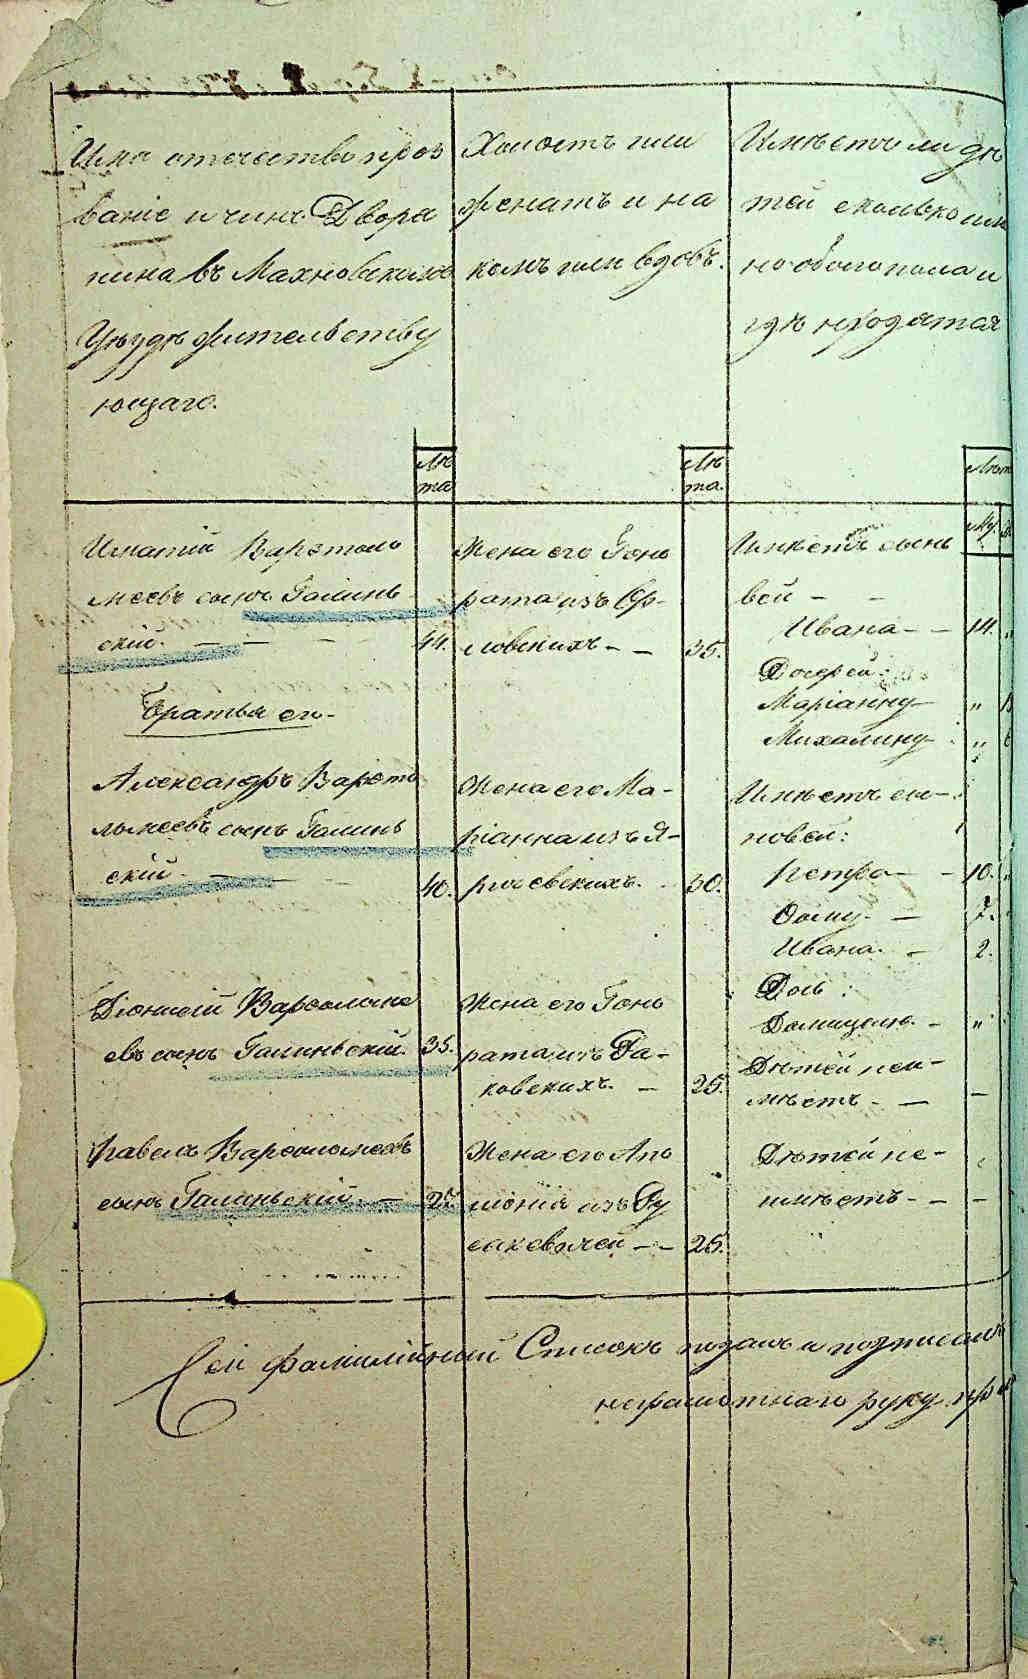 Имя отечество проз
ваніе и чинъ Двора
нина въ Махновскомъ
Уѣздѣ жительству
ющаго.
Холостъ или
женатъ и на
комъ или вдовъ.
Имѣетъ ли дѣ
тей сколько им
но обоего пола и
гдѣ находятся
Лѣ
та
Лѣ
та.
Лѣт
Му.
Игнатій Варѳоло
меевъ сынъ Галинь
скій. — — — 44.
Жена его Гоно
рата изъ Ор-
ловскихъ - - 35.
Имѣетъ сыно
вей - -
Ивана - - 14. "
Дочерей:
Маріанну "
Михалину "
Братья его -
Александръ Варѳо
ломеевъ сынъ Галинь
скій - — — 40.
Жена его Ма-
ріанна изъ Я-
скихъ. - 30.
Имѣетъ сы-
новей:
Петра - - 10.
Ѳому. — 7.
Ивана. - 2.
Дочь :
Домицелю. - "
Діонисій Варѳоломе
евъ сынъ Галиньскій. 35.
Жена его Гоно
рата изъ Га-
ковскихъ. — 25.
Дѣтей неи-
мѣетъ - — —
Павелъ Варѳоломеевъ
сынъ Галиньскій. — 27.
Жена его Апо
лонія изъ Гу
саковичей - - 25.
Дѣтей не-
имѣетъ - - —
Сей фамилійный Списокъ подалъ и подписалъ
неграмотнаго руку